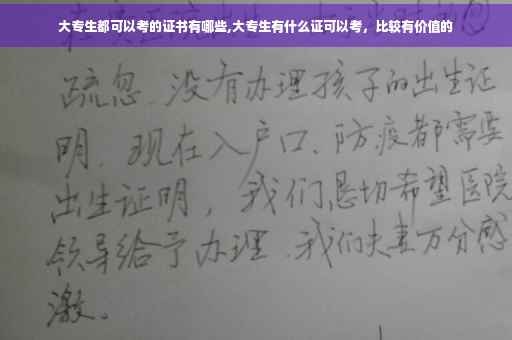 大专生都可以考的证书有哪些,大专生有什么证可以考，比较有价值的
疏忽、没有办理孩子的出生证
明、现在入户口、防疫都需要
出生证明，我们恳切希望医院
领导给予办理、我们夫妻万分感
激。